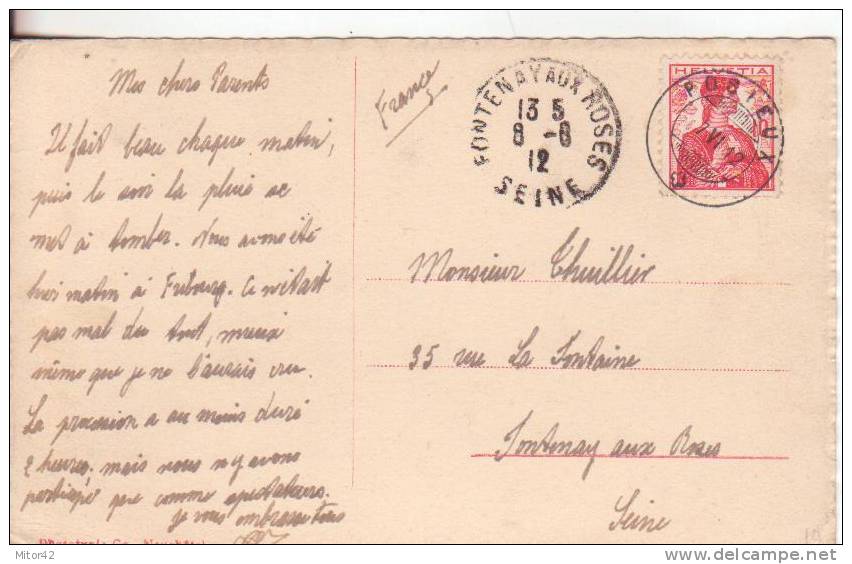 Mes chers Parents
Il fait beau chaque matin,
puis le soir la pluie se
met à tomber. Nous avons été
hier matin à Fribourg. Ce n'était
pas mal du tout, mieux
même que je ne l'aurais cru.
La procession a au moins duré
2 heures. mais nous n'y avons
participé que comme spectateurs.
je vous embrasse tous
France
FONTENAY AUX ROSES
13 5
8 - 6
12
SEINE
HELVETIA
POSIEUX
7 VI 12
Monsieur Thuillier
35 rue La Fontaine
Fontenay aux Roses
Seine
Phototypie Co., Neuchâtel
Mitor42
delcampe.net